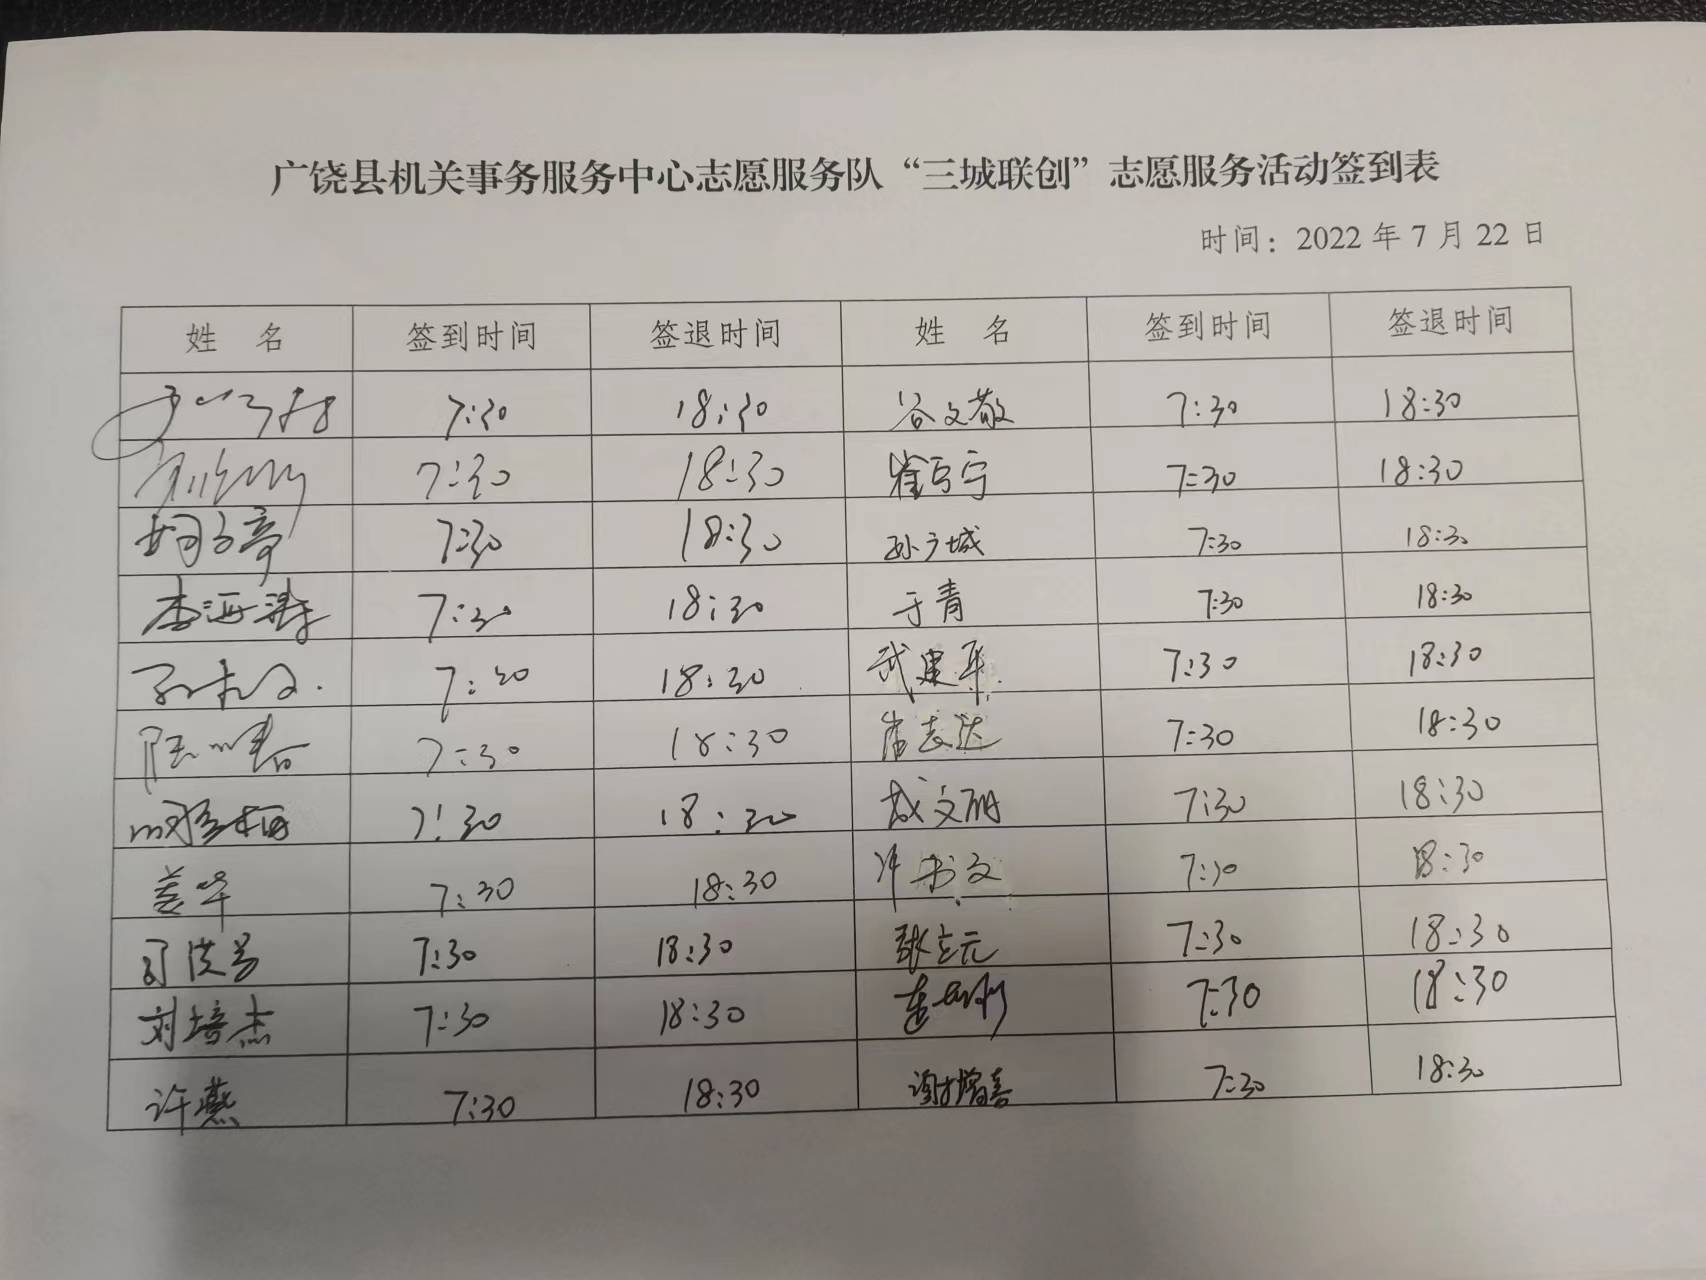 广饶县机关事务服务中心志愿服务队“三城联创”志愿服务活动签到表
时间：2022年7月22日
姓 名 签到时间 签退时间 姓 名 签到时间 签退时间
7:30 18:30 谷文敬 7:30 18:30
7:30 18:30 7:30 18:30
7:30 18:30 孙广城 7:30 18:30
李海涛 7:30 18:30 于青 7:30 18:30
7:30 18:30 武建军 7:30 18:30
7:30 18:30 崔志达 7:30 18:30
7:30 18:30 成文丽 7:30 18:30
姜华 7:30 18:30 许书文 7:30 18:30
7:30 18:30 张立元 7:30 18:30
刘培杰 7:30 18:30 7:30 18:30
许燕 7:30 18:30 谢增喜 7:30 18:30